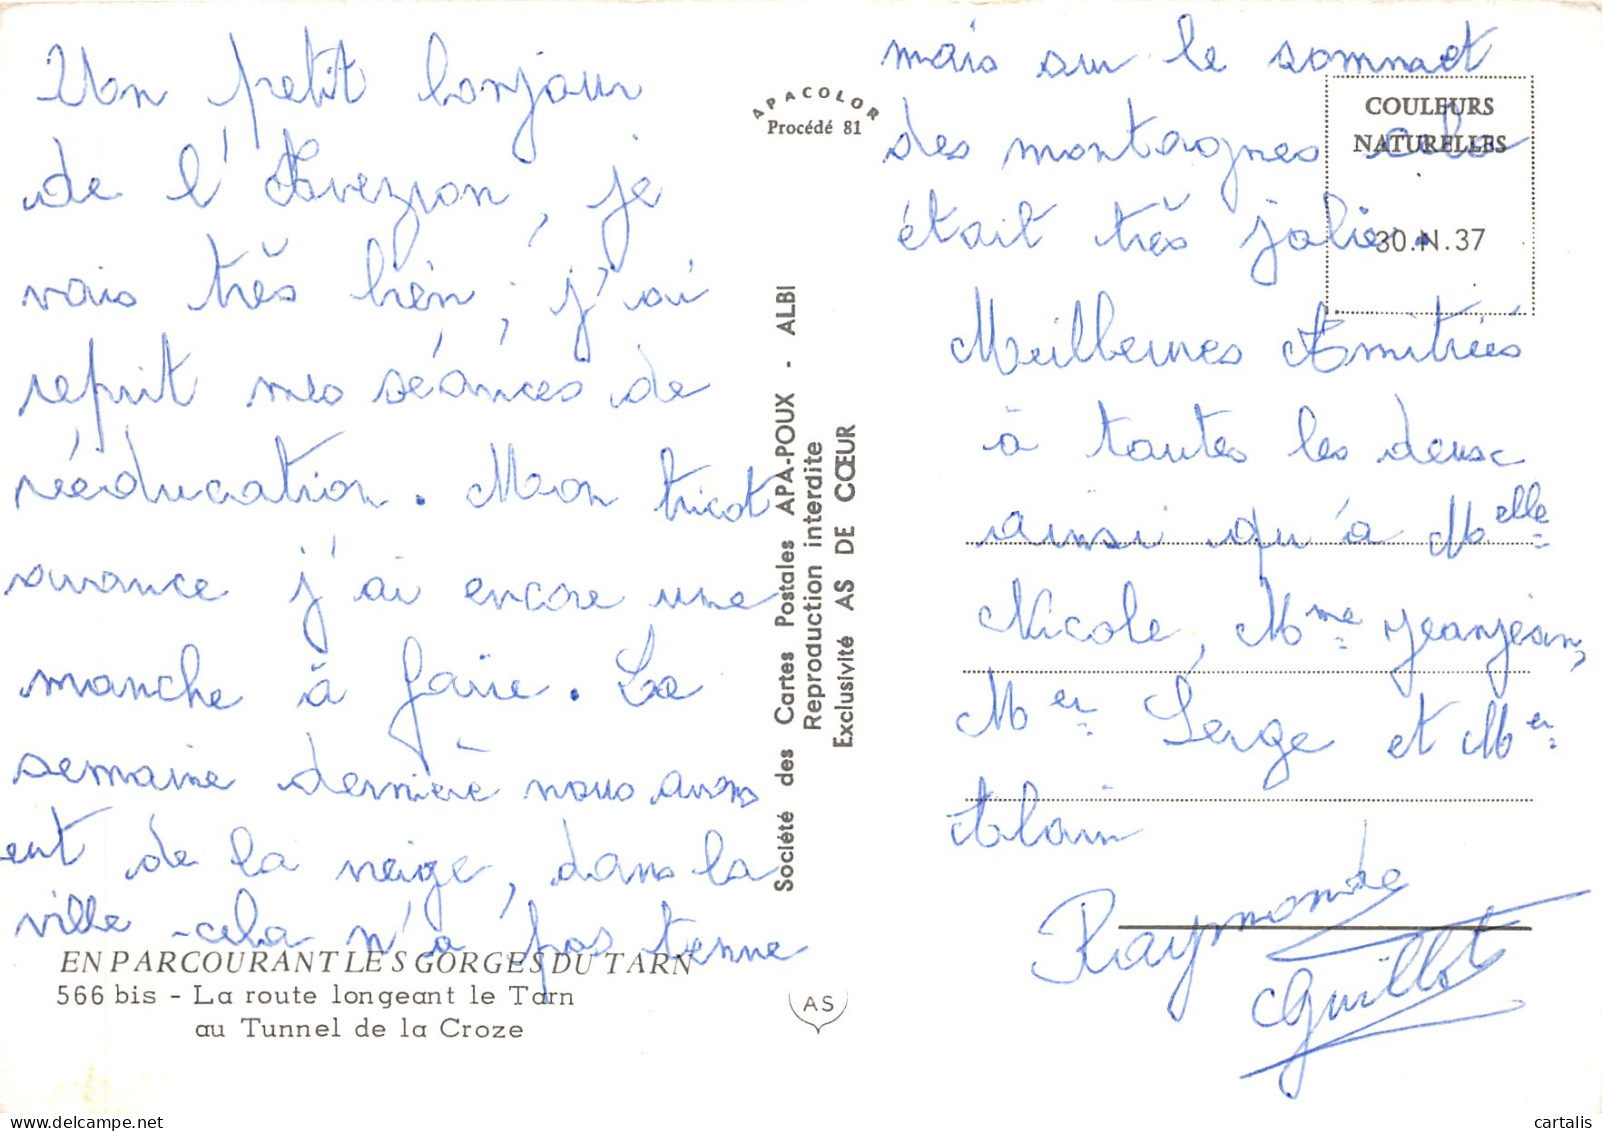 Un petit bonjour
de l'Aveyron, je
vais très bien, j'ai
reprit mes séances de
rééducation. Mon tricot
avance j'ai encore une
manche à faire. La
semaine dernière nous avons
eut de la neige, dans la
ville cela n'a pas tenue
EN PARCOURANT LES GORGES DU TARN
566 bis - La route longeant le Tarn
au Tunnel de la Croze
APACOLOR
Procédé 81
Société des Cartes Postales APA-POUX - ALBI
Reproduction interdite
Exclusivité AS DE CŒUR
AS
mais sur le sommet
des montagnes cela
était très jolie.
COULEURS
NATURELLES
30.N.37
Meilleures Amitiées
à toutes les deux
ainsi qu'à Melle
Nicole, Mme Jeanjean,
Mer Serge et Mer
Alain
Raymonde
Guillot
cartalis
www.delcampe.net